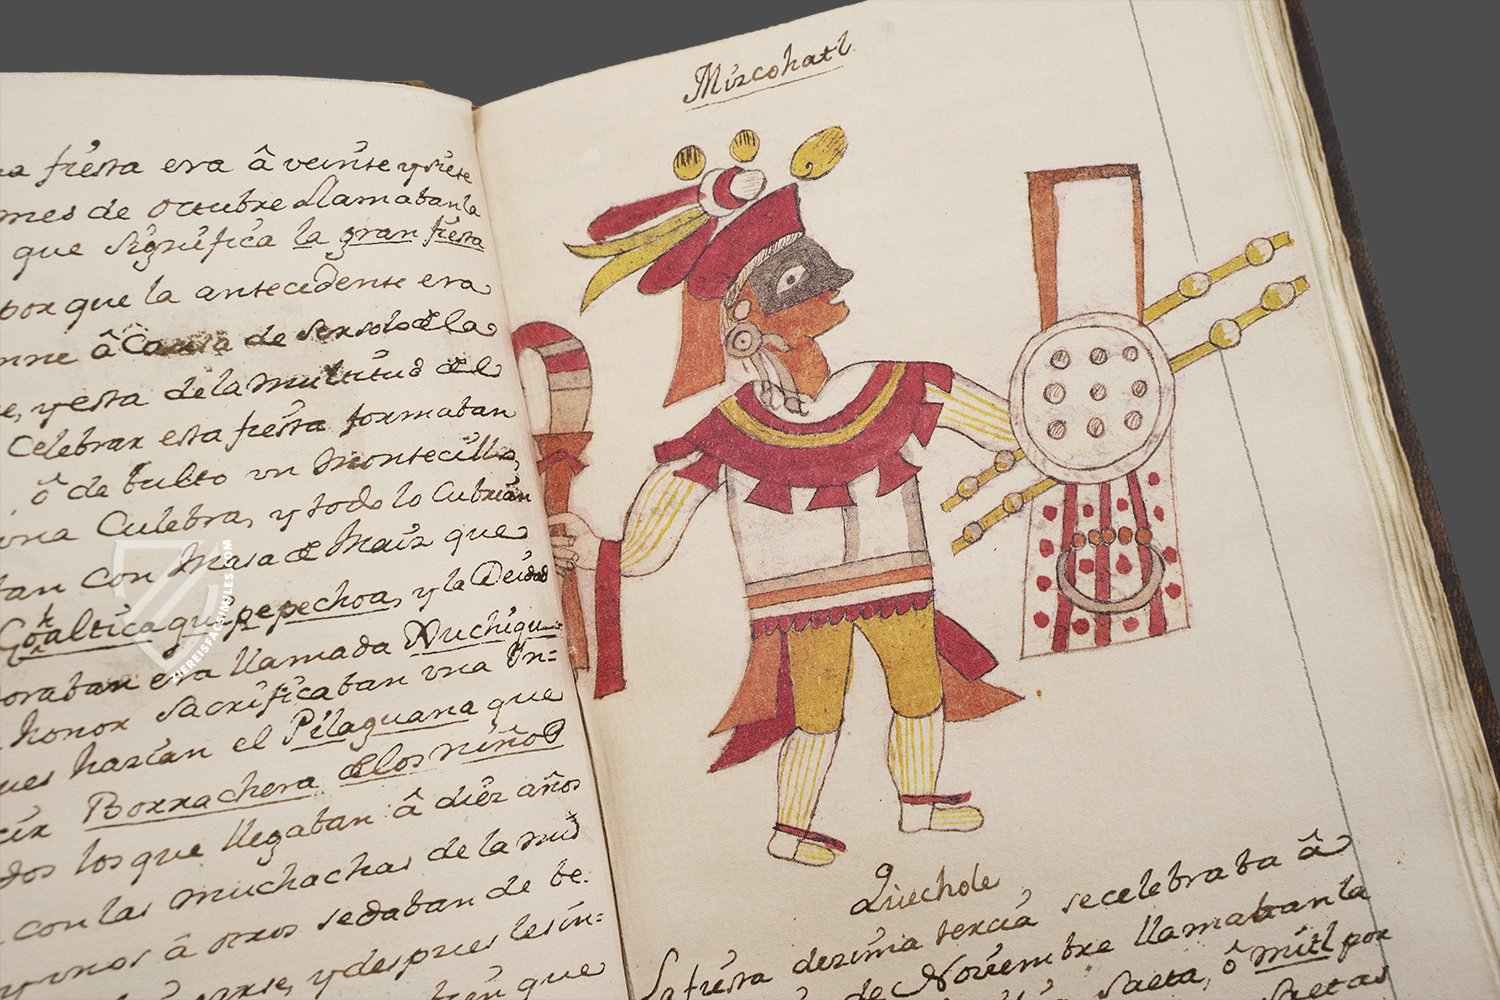 fiesta era â veinte y siete
mes de octubre llamaban la
que significa la gran fiesta
por que la antecedente era
â Causa de ser solo de la
y esta de la multitud de el
celebrar esta fiesta formaban
ô de bulto un montecillo,
una Culebra, y todo lo Cubrian
con Masa de Maiz que
Coalticaquipepechoa, y la Deidad
era llamada Xuchiqu-
honor sacrificaban una In=
hazian el Pilaguana que
Borrachera de los niños
los que llegaban â diez años
con las muchachas de la mis
unos â otros se daban de be-
y despues les in=
que
Mizcohatl
Quechole
La fiesta dezima tercia se celebraba â
de Noviembre llamaban la
Saeta, ô mitl por
Saetas
ZIEREISFACSIMILES.COM